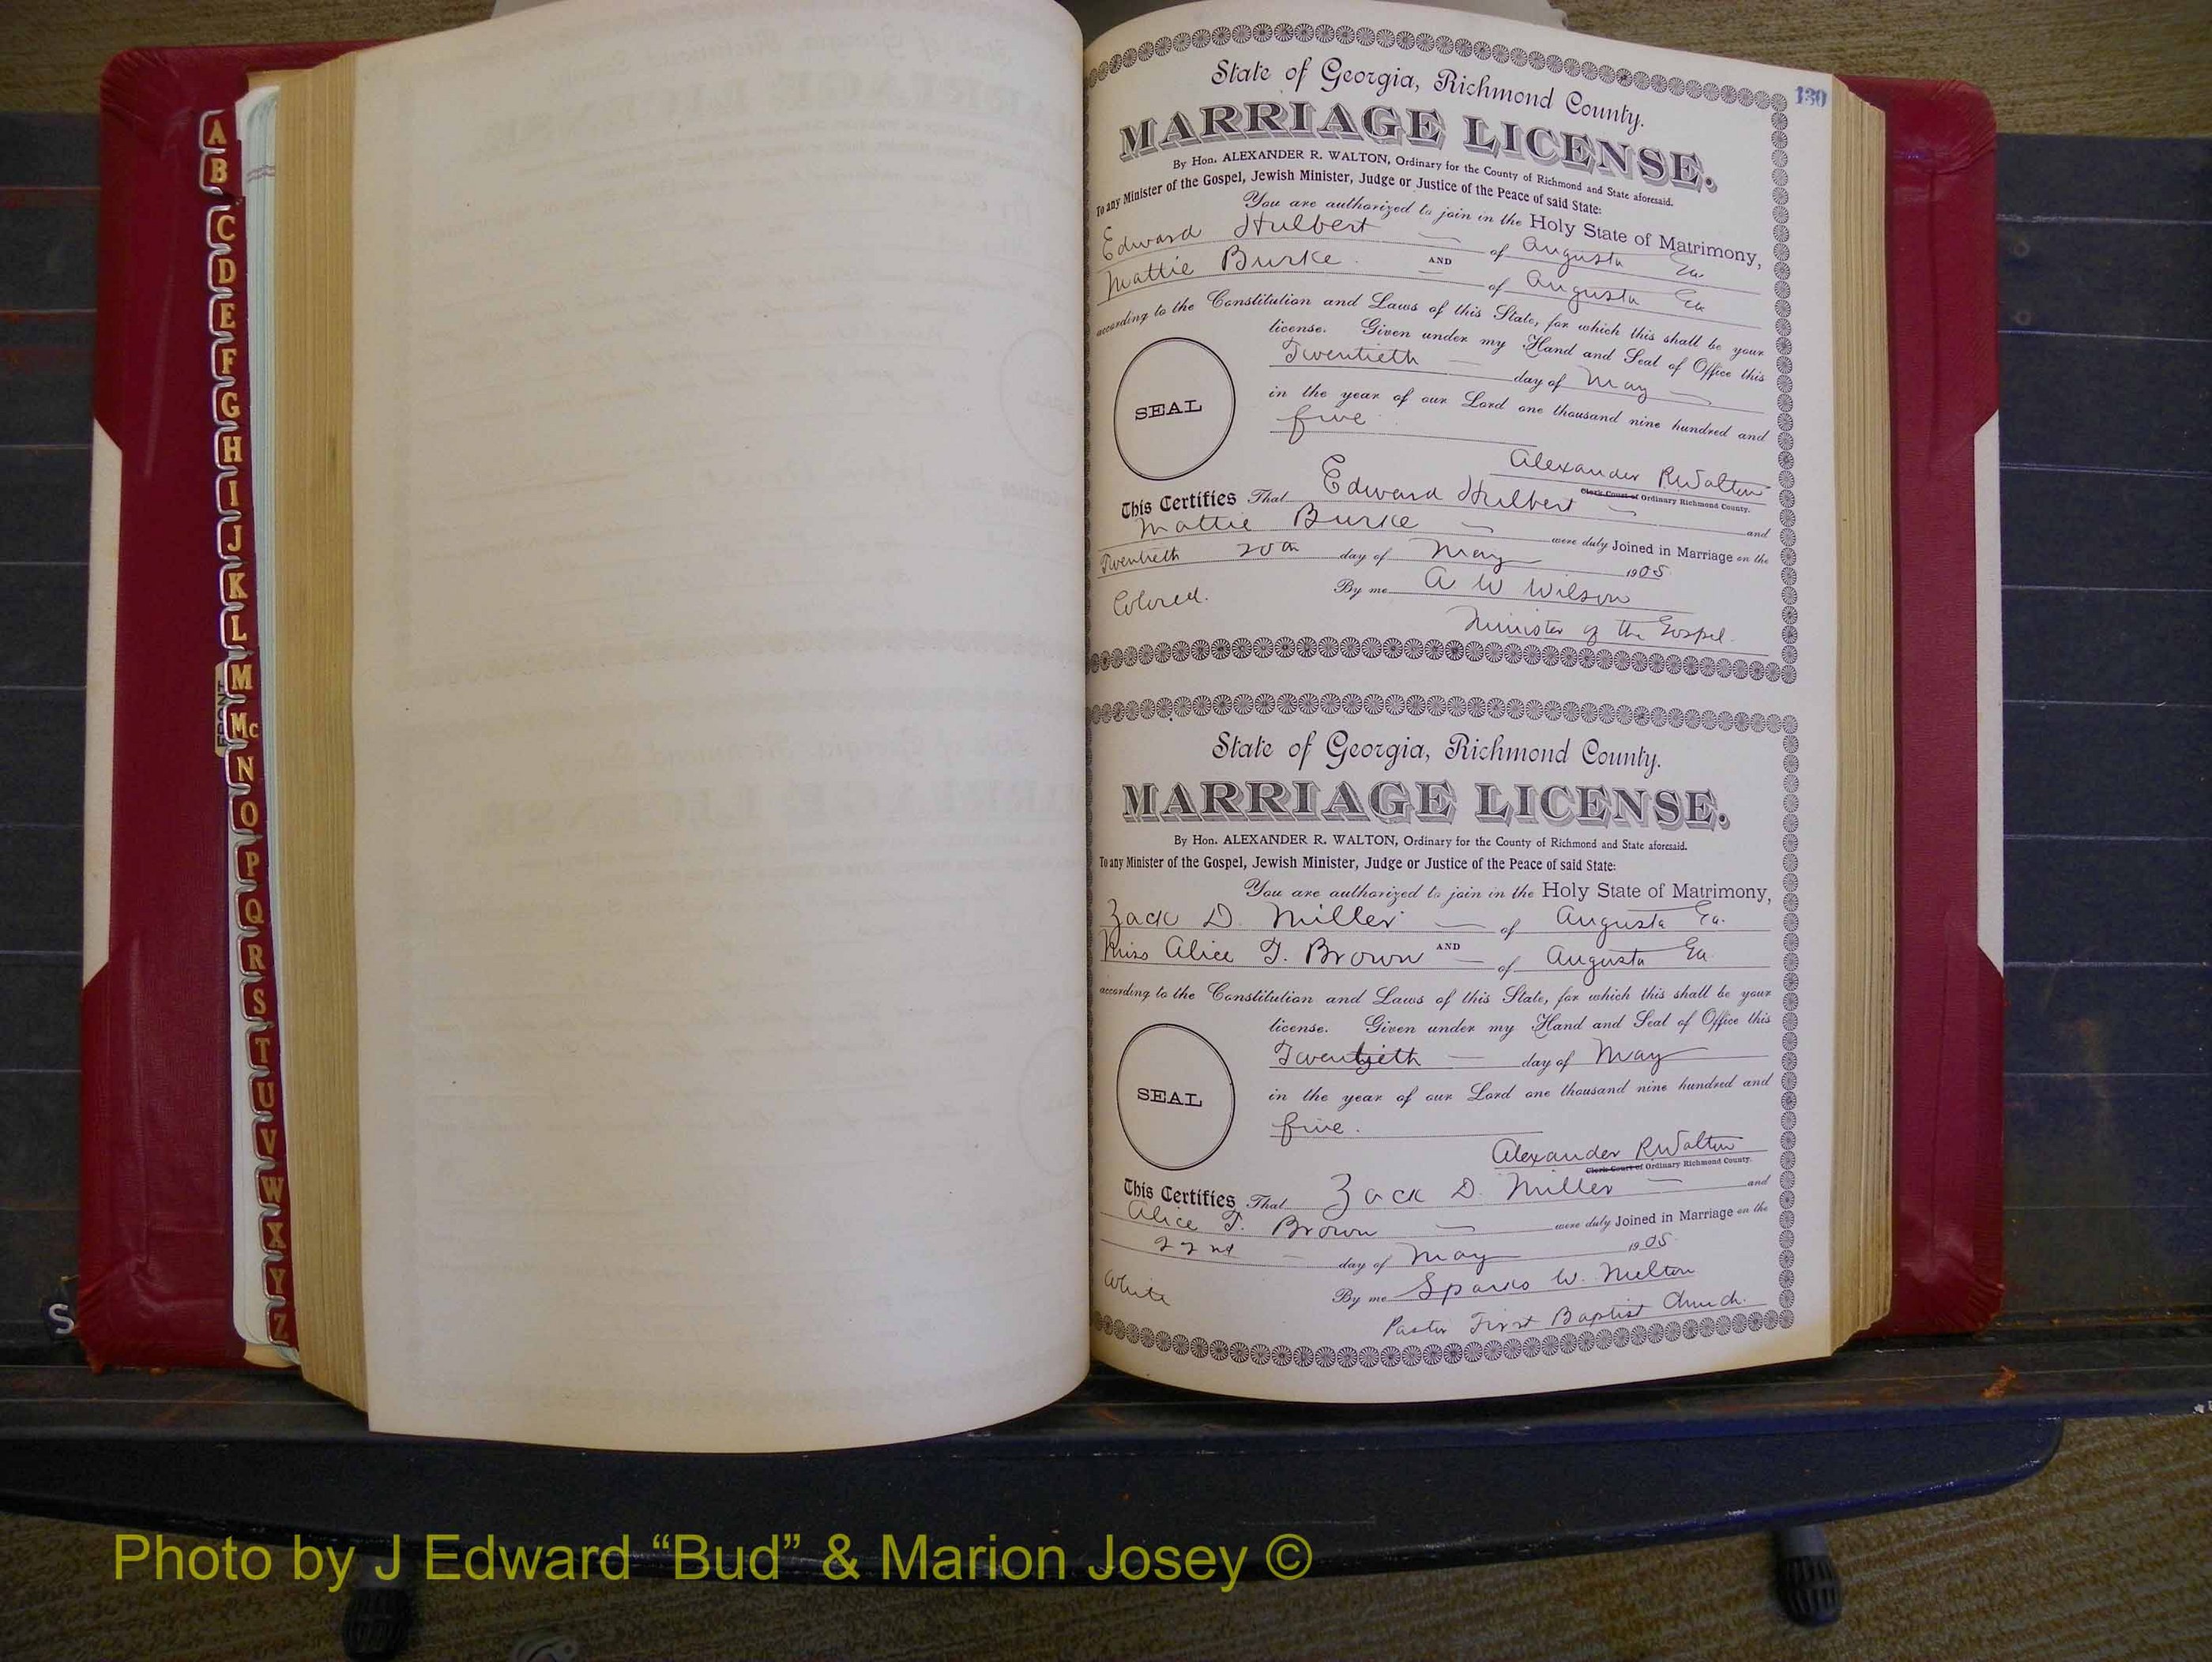 A
B
C
D
E
F
G
H
I
J
K
L
M
Mc
N
O
P
Q
R
S
T
U
V
W
X
Y
Z
FRONT
S
130
State of Georgia, Richmond County.
MARRIAGE LICENSE.
By Hon. ALEXANDER R. WALTON, Ordinary for the County of Richmond and State aforesaid.
To any Minister of the Gospel, Jewish Minister, Judge or Justice of the Peace of said State:
You are authorized to join in the Holy State of Matrimony,
Edward Hulbert — of Augusta Ga.
AND
Mattie Burke of Augusta Ga
according to the Constitution and Laws of this State, for which this shall be your
license. Given under my Hand and Seal of Office this
Twentieth — day of May
in the year of our Lord one thousand nine hundred and
five
SEAL
Alexander R Walton
Clerk Court of Ordinary Richmond County.
This Certifies That Edward Hulbert — and
Mattie Burke — were duly Joined in Marriage on the
Twentieth 20th day of May 1905
Colored. By me A W Wilson
Minister of the Gospel.
State of Georgia, Richmond County.
MARRIAGE LICENSE.
By Hon. ALEXANDER R. WALTON, Ordinary for the County of Richmond and State aforesaid.
To any Minister of the Gospel, Jewish Minister, Judge or Justice of the Peace of said State:
You are authorized to join in the Holy State of Matrimony,
Zack D. Miller — of Augusta Ga.
AND
Miss Alice T. Brown — of Augusta Ga
according to the Constitution and Laws of this State, for which this shall be your
license. Given under my Hand and Seal of Office this
Twentieth — day of May
in the year of our Lord one thousand nine hundred and
five.
SEAL
Alexander R Walton
Clerk Court of Ordinary Richmond County.
This Certifies That Zack D. Miller — and
Alice T. Brown — were duly Joined in Marriage on the
22nd — day of May 1905
White By me Sparks W. Melton
Pastor First Baptist Church.
Photo by J Edward “Bud” & Marion Josey ©